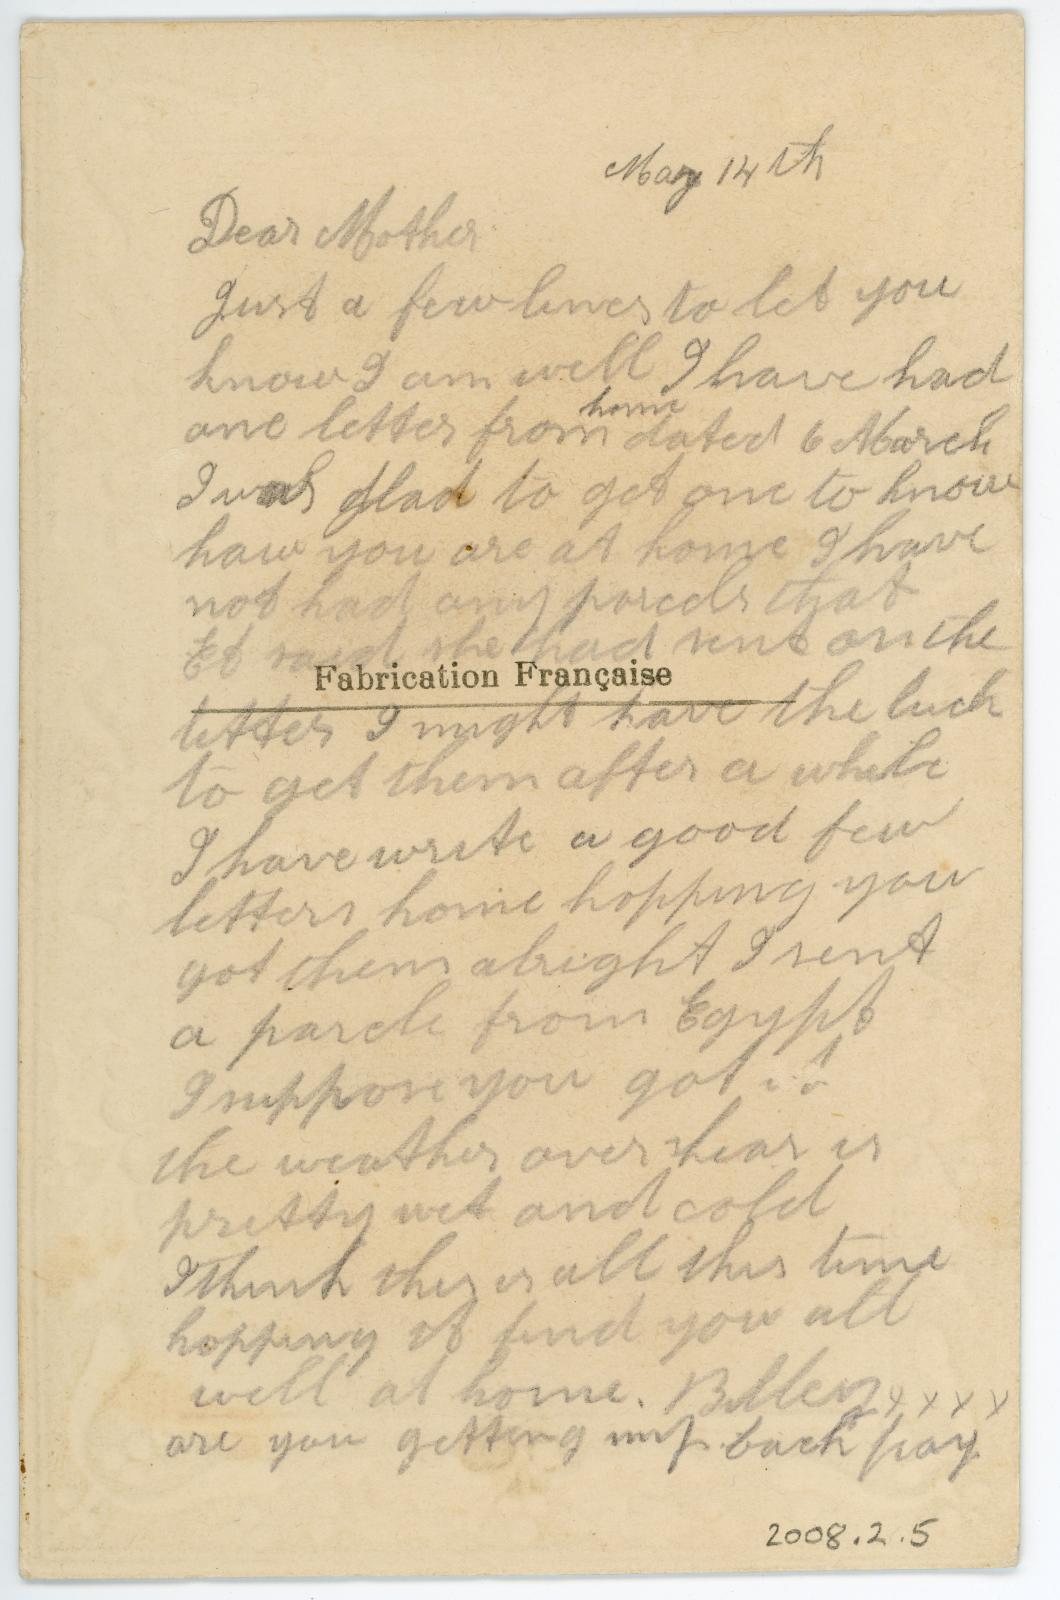 May 14th
Dear Mother
Just a few lines to let you
know I am well I have had
one letter from home dated 6 March
I was glad to get one to know
haw you are at home I have
not had any parcels that
Et said she had sent on the
Fabrication Française
letter I might have the luck
to get them after a while
I have write a good few
letters home hopping you
got them alright I sent
a parcle from Egypt
I suppose you got it
the weather over hear is
pretty wet and cold
I think this is all this time
hopping it find you all
well at home. Billey xxxx
are you getting my back pay
2008.2.5